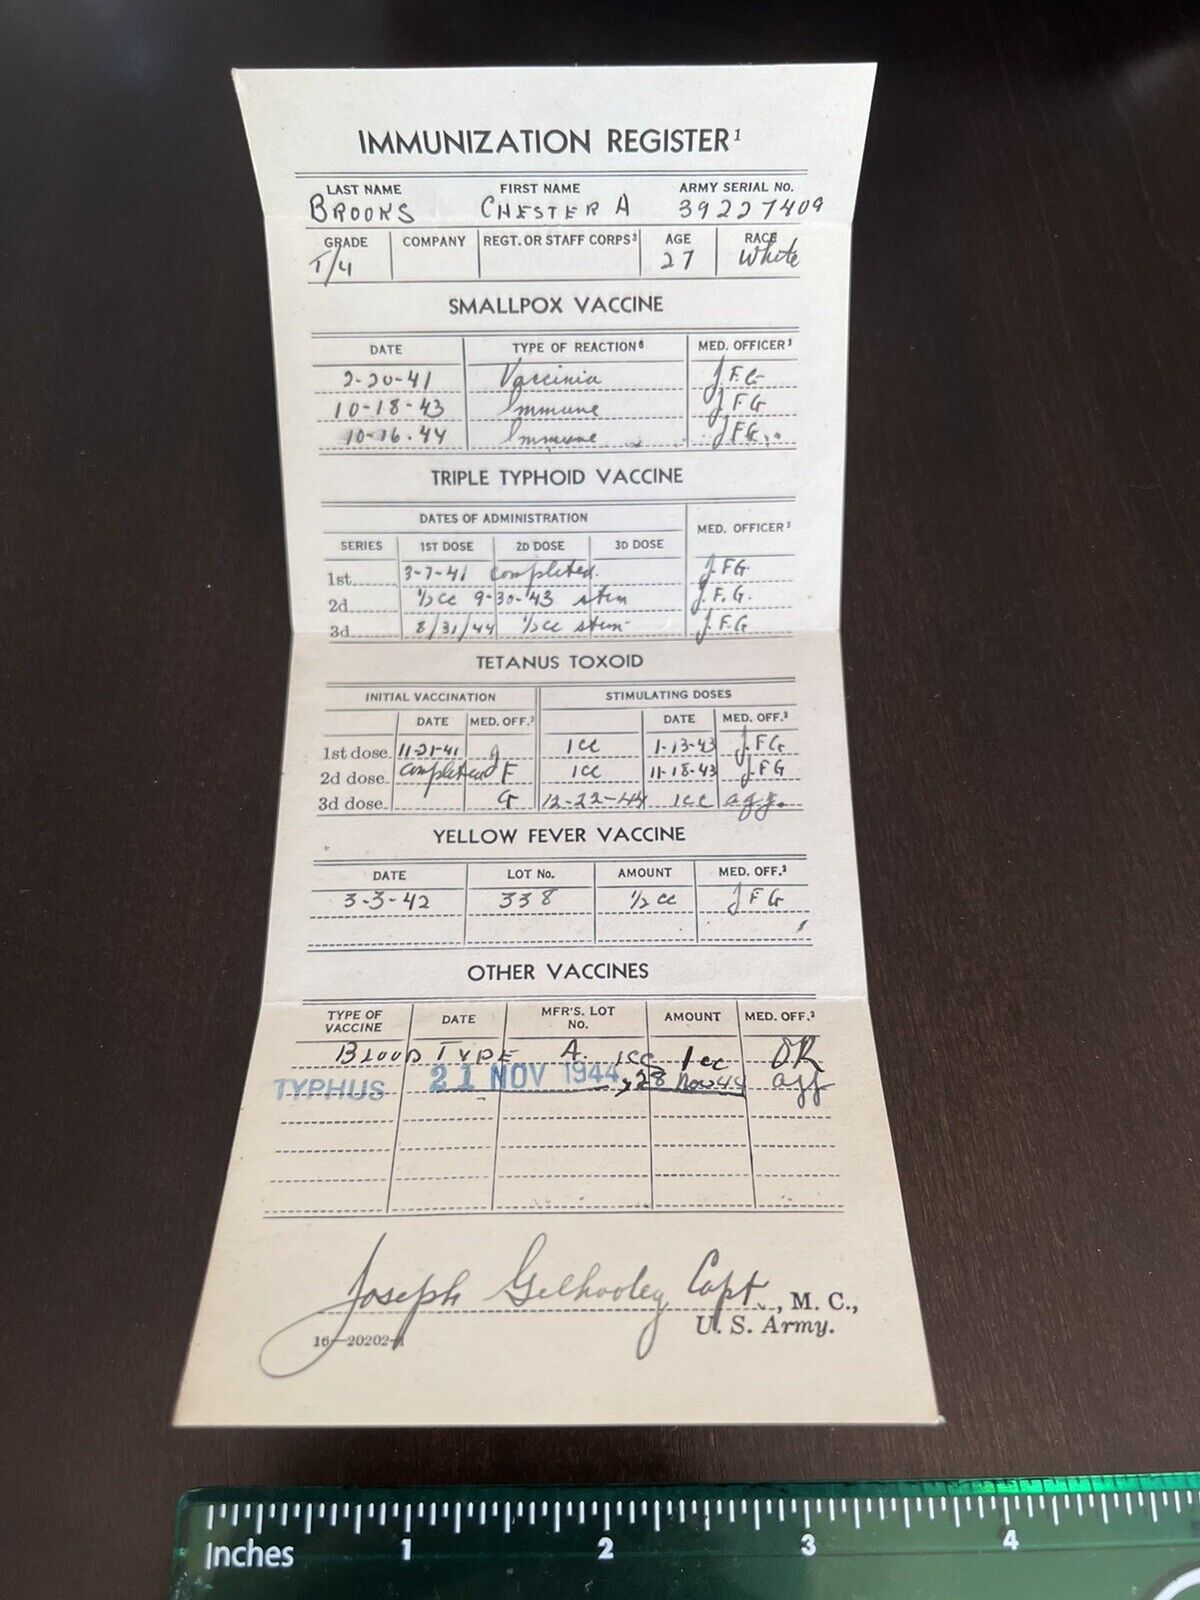 IMMUNIZATION REGISTER¹
LAST NAME FIRST NAME ARMY SERIAL NO.
BROOKS CHESTER A 39227409
GRADE COMPANY REGT. OR STAFF CORPS³ AGE RACE
T/4 27 White
SMALLPOX VACCINE
DATE TYPE OF REACTION⁶ MED. OFFICER³
2-20-41 Vaccinia J.F.G.
10-18-43 Immune JFG
10-16-44 Immune JFG
TRIPLE TYPHOID VACCINE
DATES OF ADMINISTRATION MED. OFFICER³
SERIES 1ST DOSE 2D DOSE 3D DOSE
1st 3-7-41 completed. J.FG.
2d ½cc 9-30-43 stim J.F.G.
3d 8/31/44 ½cc stim J.F.G
TETANUS TOXOID
INITIAL VACCINATION STIMULATING DOSES
DATE MED. OFF.³ DATE MED. OFF.³
1st dose 11-21-41 J 1cc 1-13-43 JFG
2d dose completed F 1cc 11-18-43 JFG
3d dose G 12-22-44 1cc
YELLOW FEVER VACCINE
DATE LOT No. AMOUNT MED. OFF.³
3-3-42 338 ½cc JFG
OTHER VACCINES
TYPE OF VACCINE DATE MFR'S. LOT NO. AMOUNT MED. OFF.³
BLOOD TYPE A. 1cc 1cc
TYPHUS 21 NOV 1944, 28 Nov 44
Joseph Gilhooley Capt., M. C.,
16—20202-1 U. S. Army.
Inches 1 2 3 4